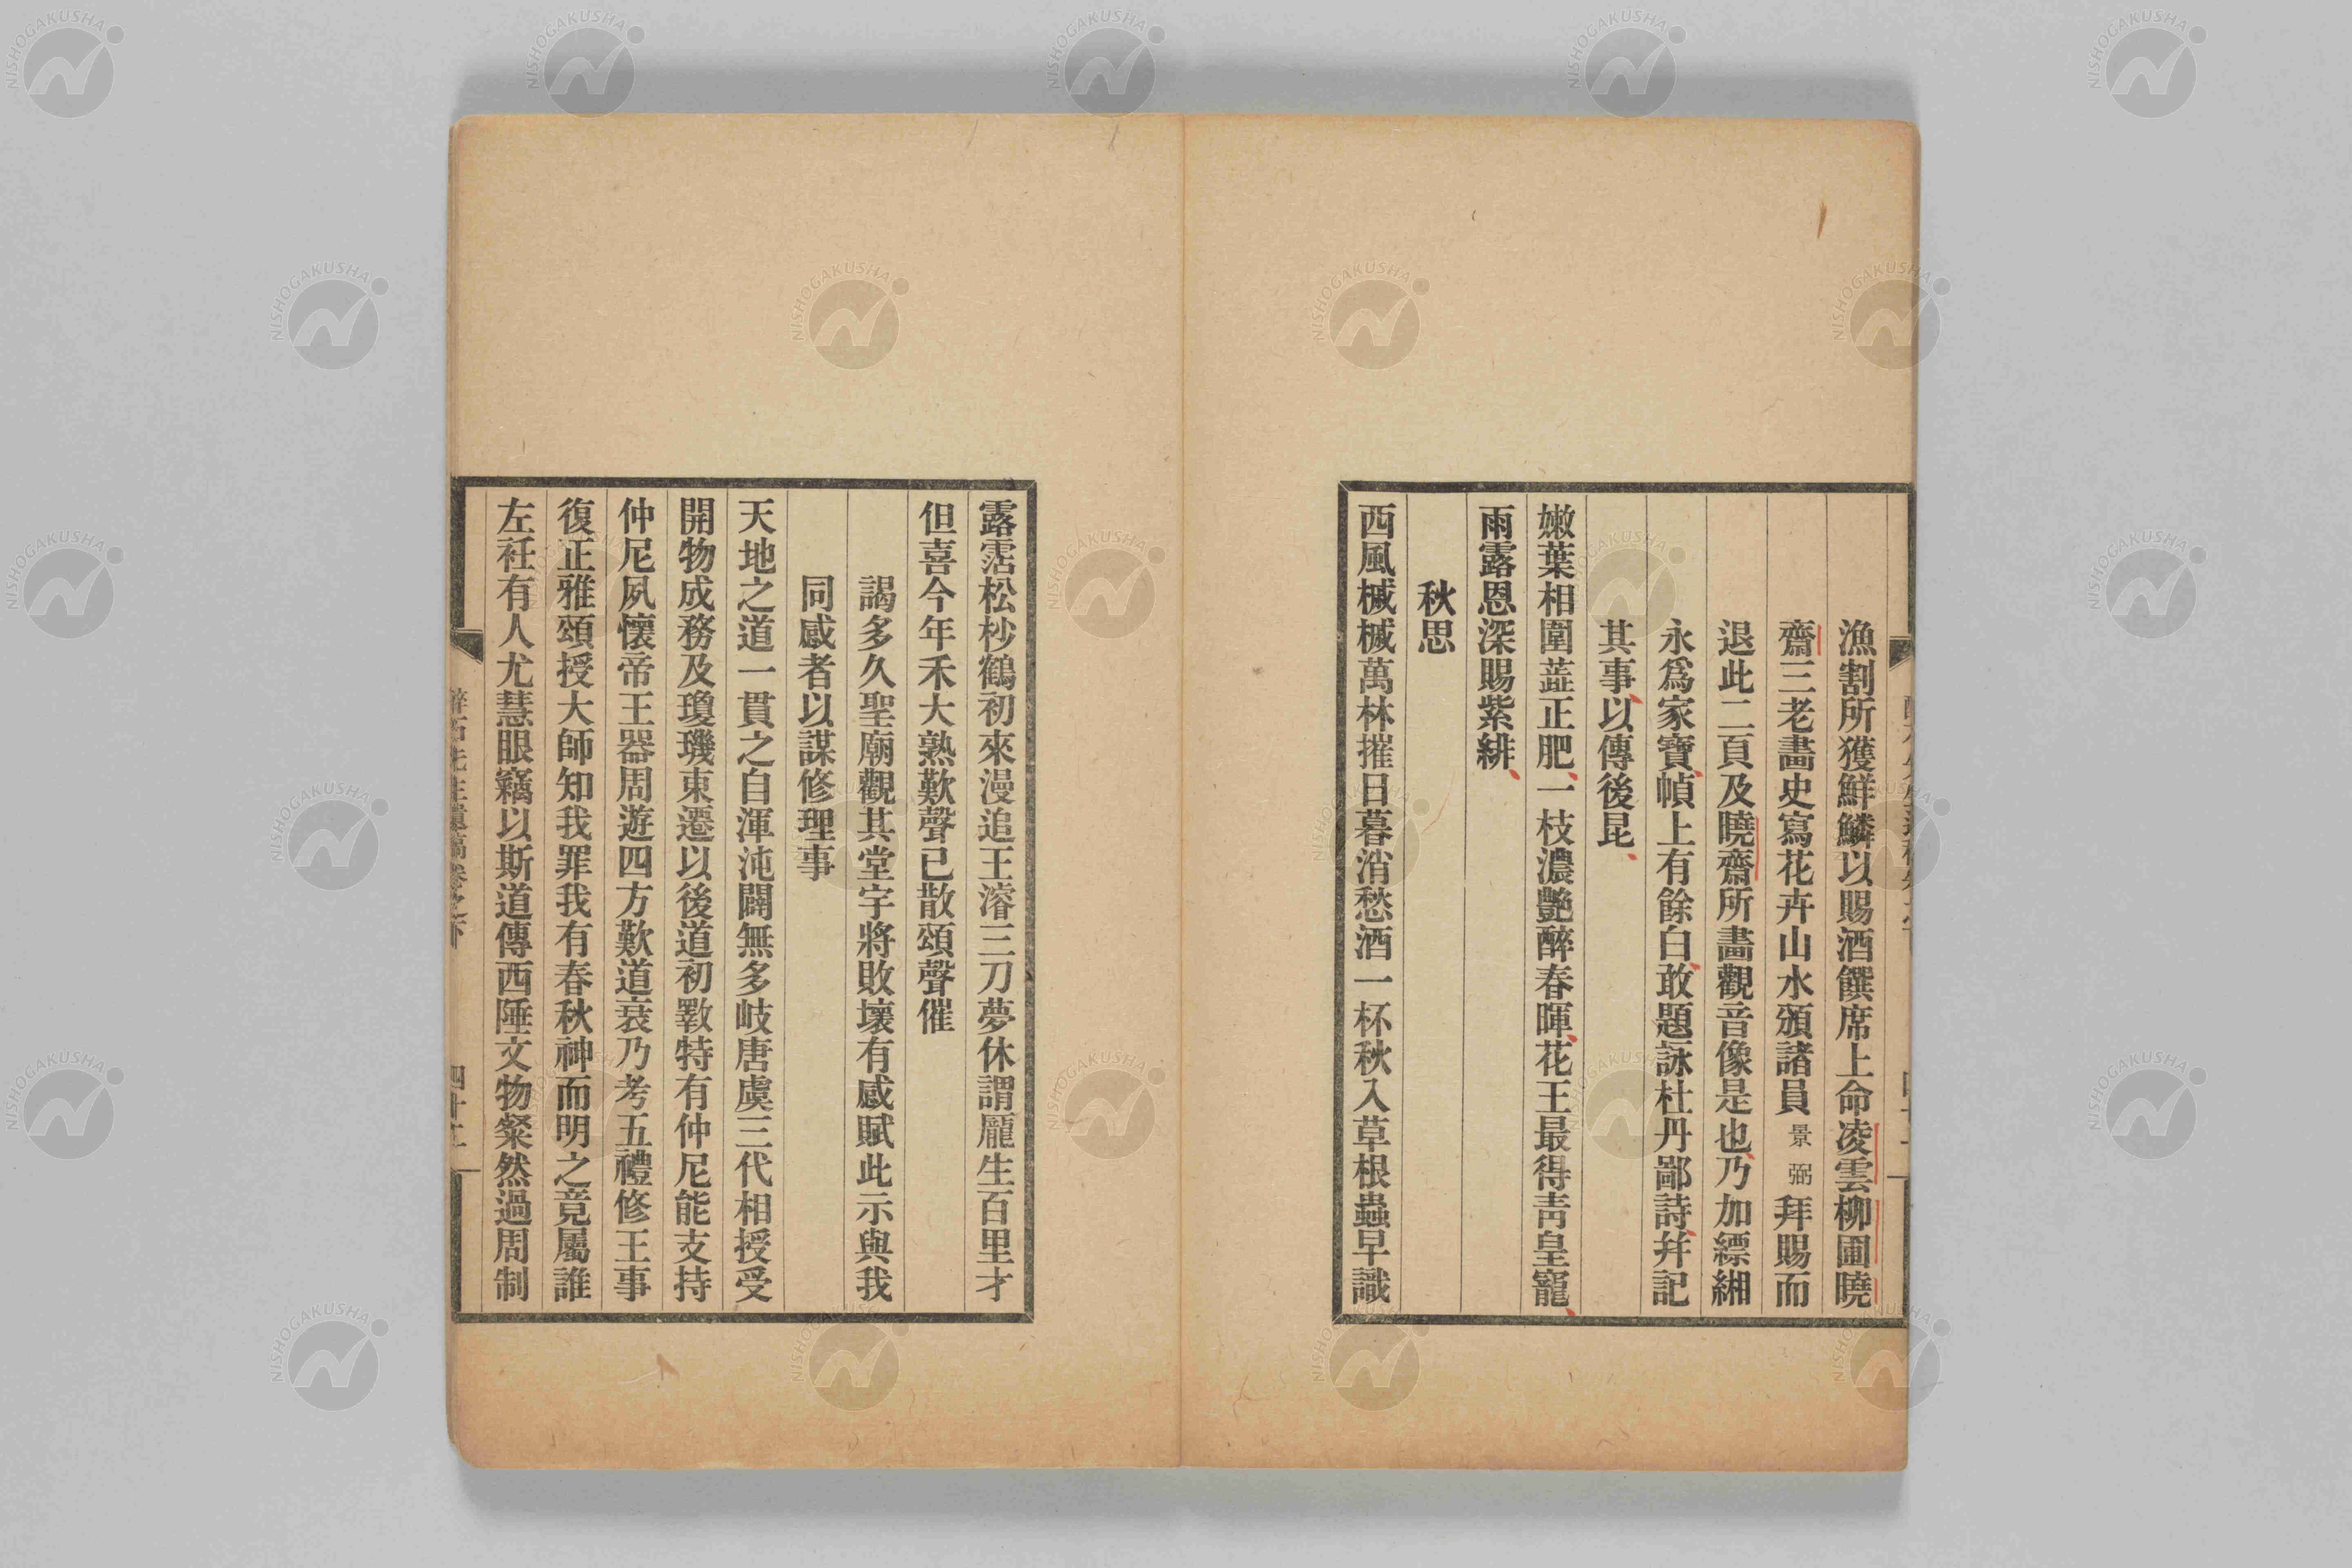 漁割所獲鮮鱗以賜酒饌席上命凌雲柳圃曉
齋三老畵史寫花卉山水頒諸員景弼拜賜而
退此二頁及曉齋所畵觀音像是也乃加縹緗
永爲家寶幀上有餘白敢題詠杜丹鄙詩幷記
其事以傳後昆
嫩葉相圍蘂正肥一枝濃艷醉春暉花王最得靑皇寵
雨露恩深賜紫緋
秋思
西風槭槭萬林摧日暮消愁酒一杯秋入草根蟲早識
露霑松杪鶴初來漫追王濬三刀夢休謂龐生百里才
但喜今年禾大熟歎聲已散頌聲催
謁多久聖廟觀其堂宇將敗壞有感賦此示與我
同感者以謀修理事
天地之道一貫之自渾沌闢無多岐唐虞三代相授受
開物成務及瓊璣東遷以後道初斁特有仲尼能支持
仲尼夙懷帝王器周遊四方歎道衰乃考五禮修王事
復正雅頌授大師知我罪我有春秋神而明之竟屬誰
左衽有人尤慧眼竊以斯道傳西陲文物粲然過周制
醉石先生遺稿卷之下
四十二
NISHOGAKUSHA